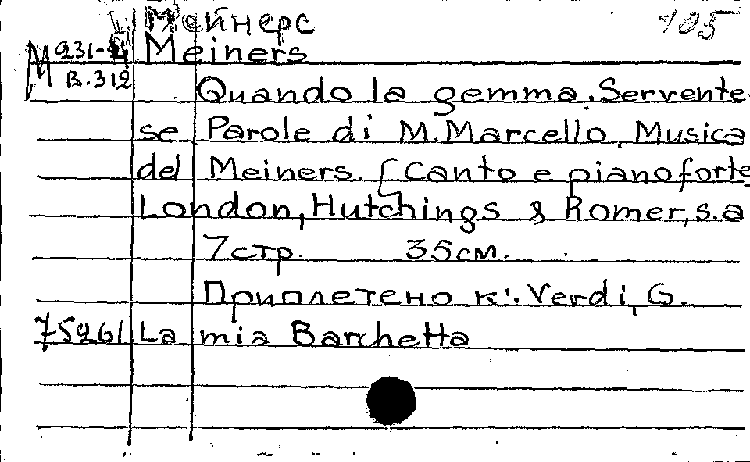 Мейнерс 105
М 231-4 Meiners
В.312
Quando la gemma. Servente-
se Parole di M. Marcello, Musica
del Meiners. [Canto e pianoforte
London, Hutchings & Romer, s.a
7 стр. 35 см.
Приплетено к: Verdi, G.
75261 La mia Barchetta